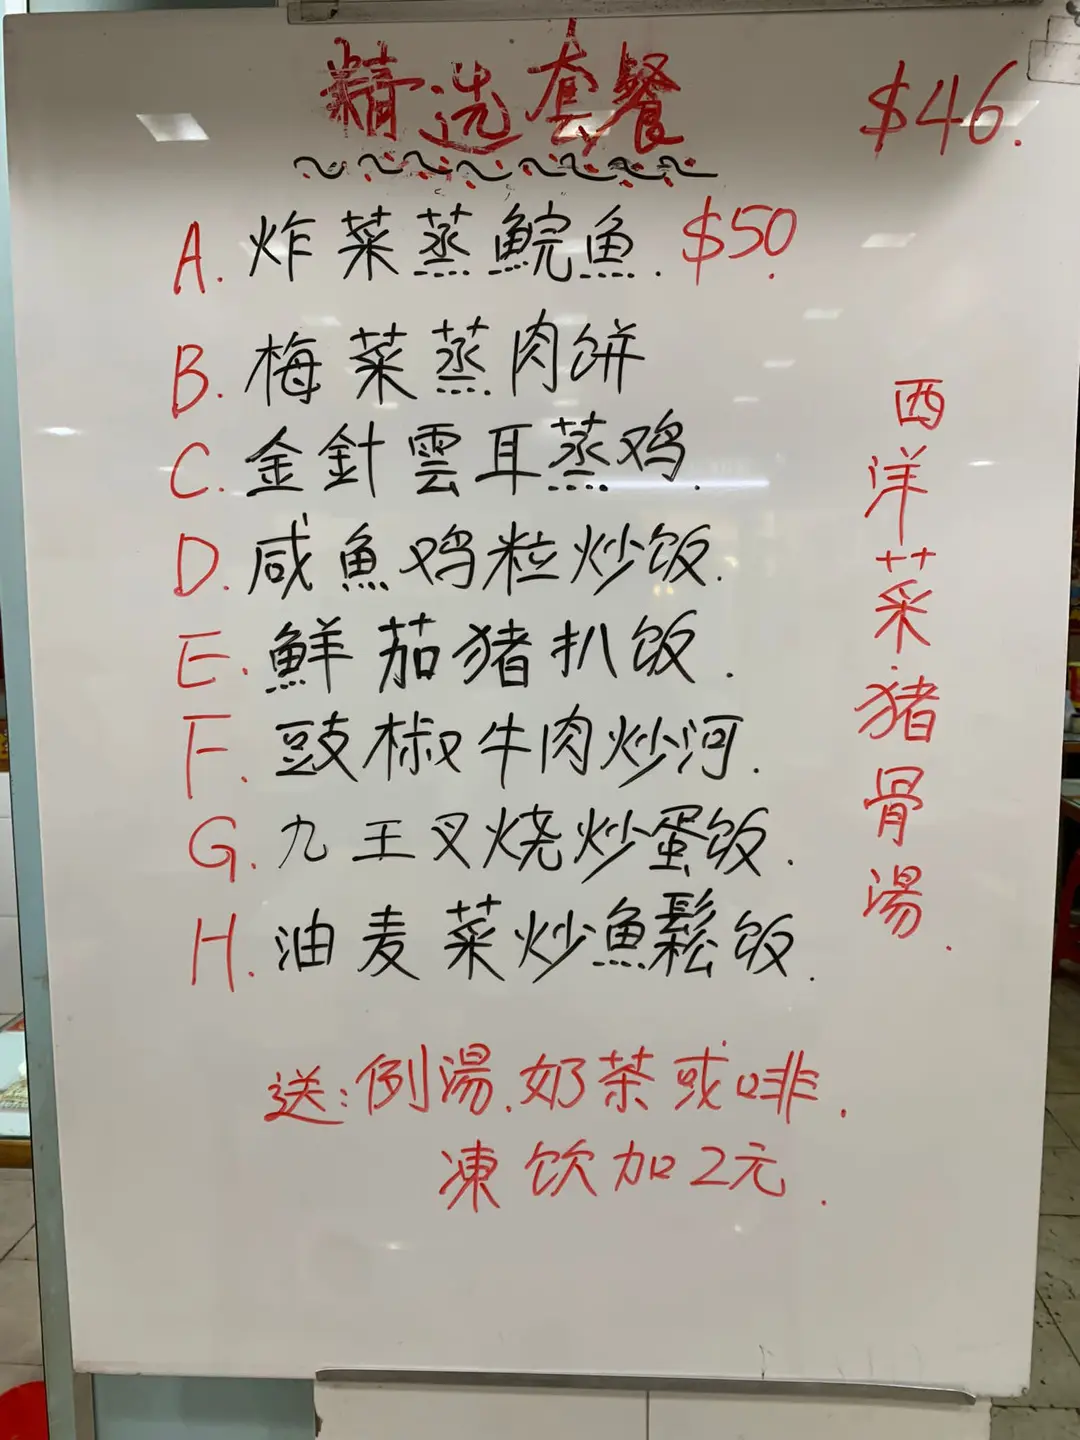 精选套餐 $46.
A. 炸菜蒸鯇魚. $50.
B. 梅菜蒸肉饼
C. 金針雲耳蒸鸡.
D. 咸魚鸡粒炒饭.
E. 鮮茄猪扒饭.
F. 豉椒牛肉炒河.
G. 九王叉烧炒蛋饭.
H. 油麦菜炒魚鬆饭.
西洋菜猪骨湯.
送:例湯.奶茶或啡.
凍饮加2元.